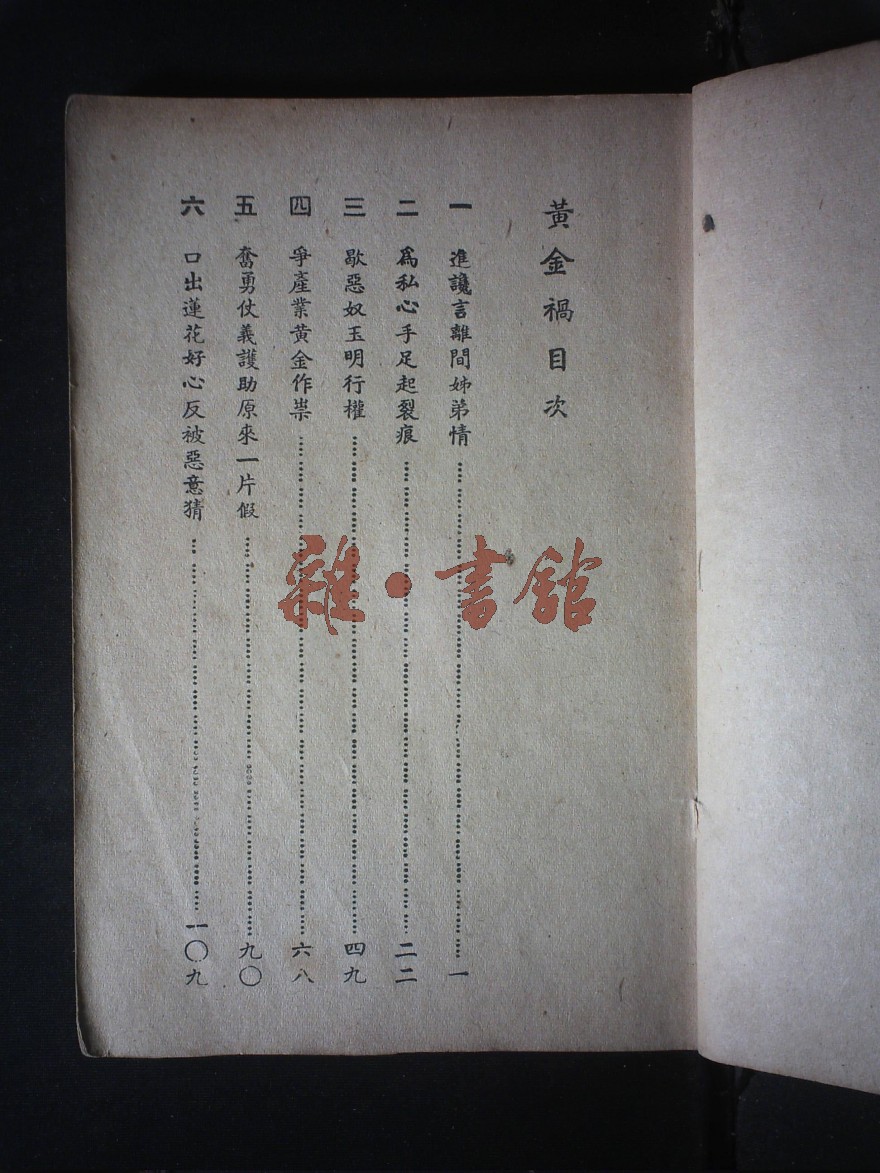 黃金禍目次
一 進讒言離間姊弟情 一
二 爲私心手足起裂痕 二二
三 歇惡奴玉明行權 四九
四 爭產業黃金作祟 六八
五 奮勇仗義護助原來一片假 九〇
六 口出蓮花好心反被惡意猜 一〇九
雜·書館